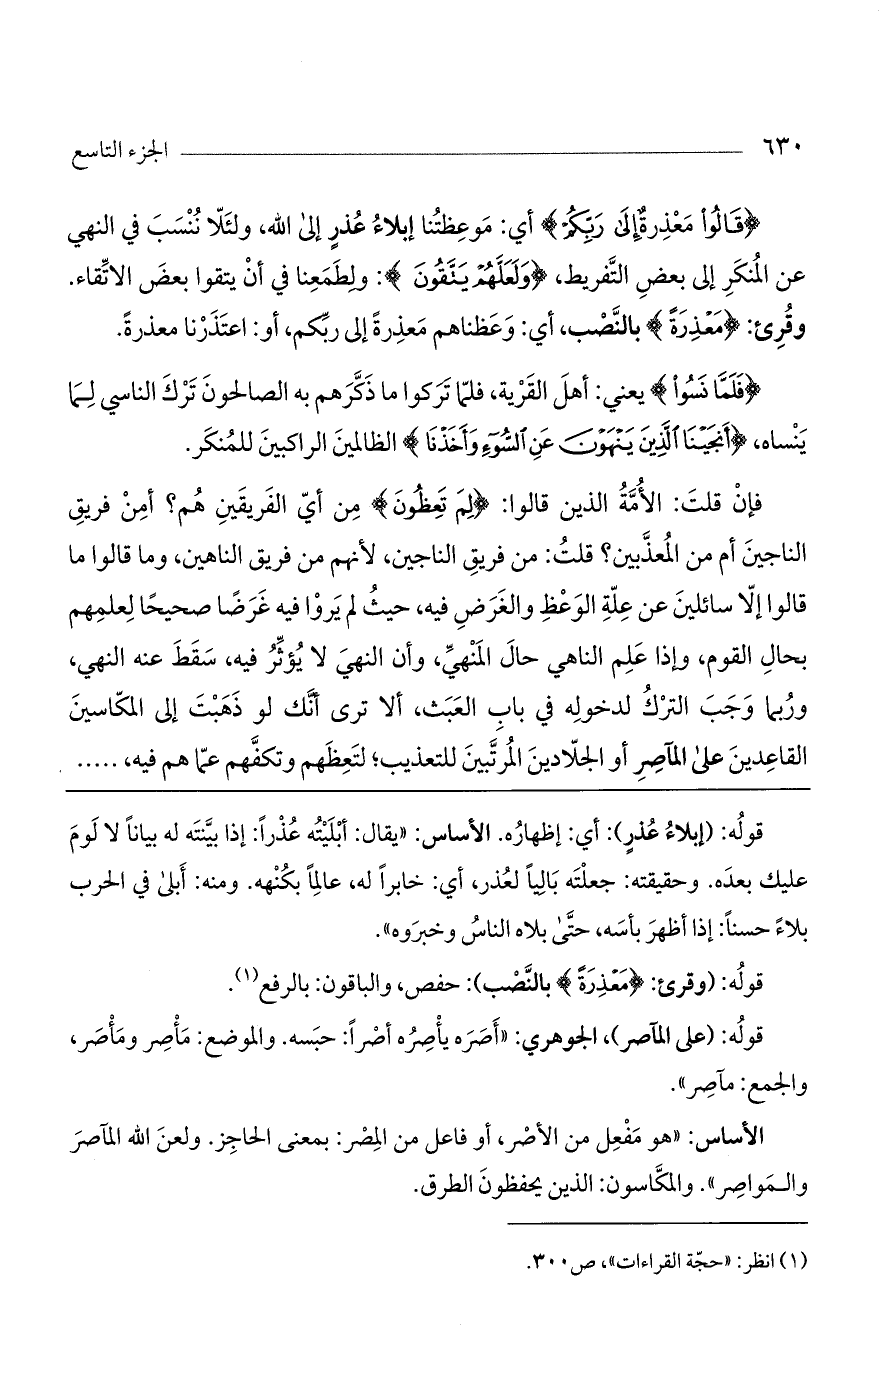 ٦٣٠ ــــــــــــــــــــ الجزء التاسع
﴿قَالُوا۟ مَعْذِرَةٌ إِلَىٰ رَبِّكُمْ﴾ أي: مَوعِظتُنا إبلاءُ عُذرٍ إلىٰ الله، ولئَلّا نُنْسَبَ في النهي
عن المُنكَرِ إلى بعضِ التَّفريط، ﴿وَلَعَلَّهُمْ يَتَّقُونَ﴾: ولِطَمَعِنا في أنْ يتقوا بعضَ الاتِّقاء.
وقُرِئ: ﴿مَعْذِرَةً﴾ بالنَّصْب، أي: وَعَظناهم مَعذِرةً إلى ربِّكم، أو: اعتَذَرْنا معذرةً.
﴿فَلَمَّا نَسُوا۟﴾ يعني: أهلَ القَرْية، فلمّا تَركوا ما ذَكَّرَهم به الصالحونَ تَرْكَ الناسي لِـمَا
يَنْساه، ﴿أَنجَيْنَا ٱلَّذِينَ يَنْهَوْنَ عَنِ ٱلسُّوٓءِ وَأَخَذْنَا﴾ الظالمينَ الراكبينَ للمُنكَر.
فإنْ قلتَ: الأُمَّةُ الذين قالوا: ﴿لِمَ تَعِظُونَ﴾ مِن أيِّ الفَريقَينِ هُم؟ أمِنْ فريقِ
الناجينَ أم من المُعذَّبين؟ قلتُ: من فريقِ الناجين، لأنهم من فريق الناهين، وما قالوا ما
قالوا إلّا سائلينَ عن عِلّةِ الوَعْظِ والغَرَضِ فيه، حيثُ لم يَروْا فيه غَرَضًا صحيحًا لِعلمِهم
بحالِ القوم، وإذا عَلِم الناهي حالَ المَنْهيِّ، وأن النهيَ لا يُؤثِّرُ فيه، سَقَطَ عنه النهي،
ورُبما وَجَبَ التركُ لدخولِه في بابِ العَبَث، ألا ترى أنَّك لو ذَهَبْتَ إلى المكّاسينَ
القاعِدينَ علىٰ المآصِرِ أو الجلّادينَ المُرتَّبينَ للتعذيب؛ لتَعِظَهم وتكفَّهم عمّا هم فيه، .....
قولُه: (إبلاءُ عُذرٍ): أي: إظهارُه. الأساس: «يقال: أبْلَيْتُه عُذْراً: إذا بيَّنتَه له بياناً لا لَومَ
عليك بعدَه. وحقيقته: جعلْتَه بَالِياً لعُذر، أي: خابراً له، عالماً بكُنْهه. ومنه: أَبلىٰ في الحرب
بلاءً حسناً: إذا أظهرَ بأسَه، حتَّىٰ بلاه الناسُ وخبرَوه».
قولُه: (وقرئ: ﴿مَعْذِرَةً﴾ بالنَّصْب): حفص، والباقون: بالرفع(١).
قولُه: (على المآصر)، الجوهري: «أَصَرَه يأْصِرُه أصْراً: حبَسه. والموضع: مَأْصِر ومَأْصَر،
والجمع: مآصِر».
الأساس: «هو مَفْعِل من الأصْر، أو فاعل من المِصْر: بمعنى الحاجِز. ولعنَ الله المآصرَ
والـمَواصِر». والمكَّاسون: الذين يحفظونَ الطرق.
(١) انظر: «حجّة القراءات»، ص٣٠٠.